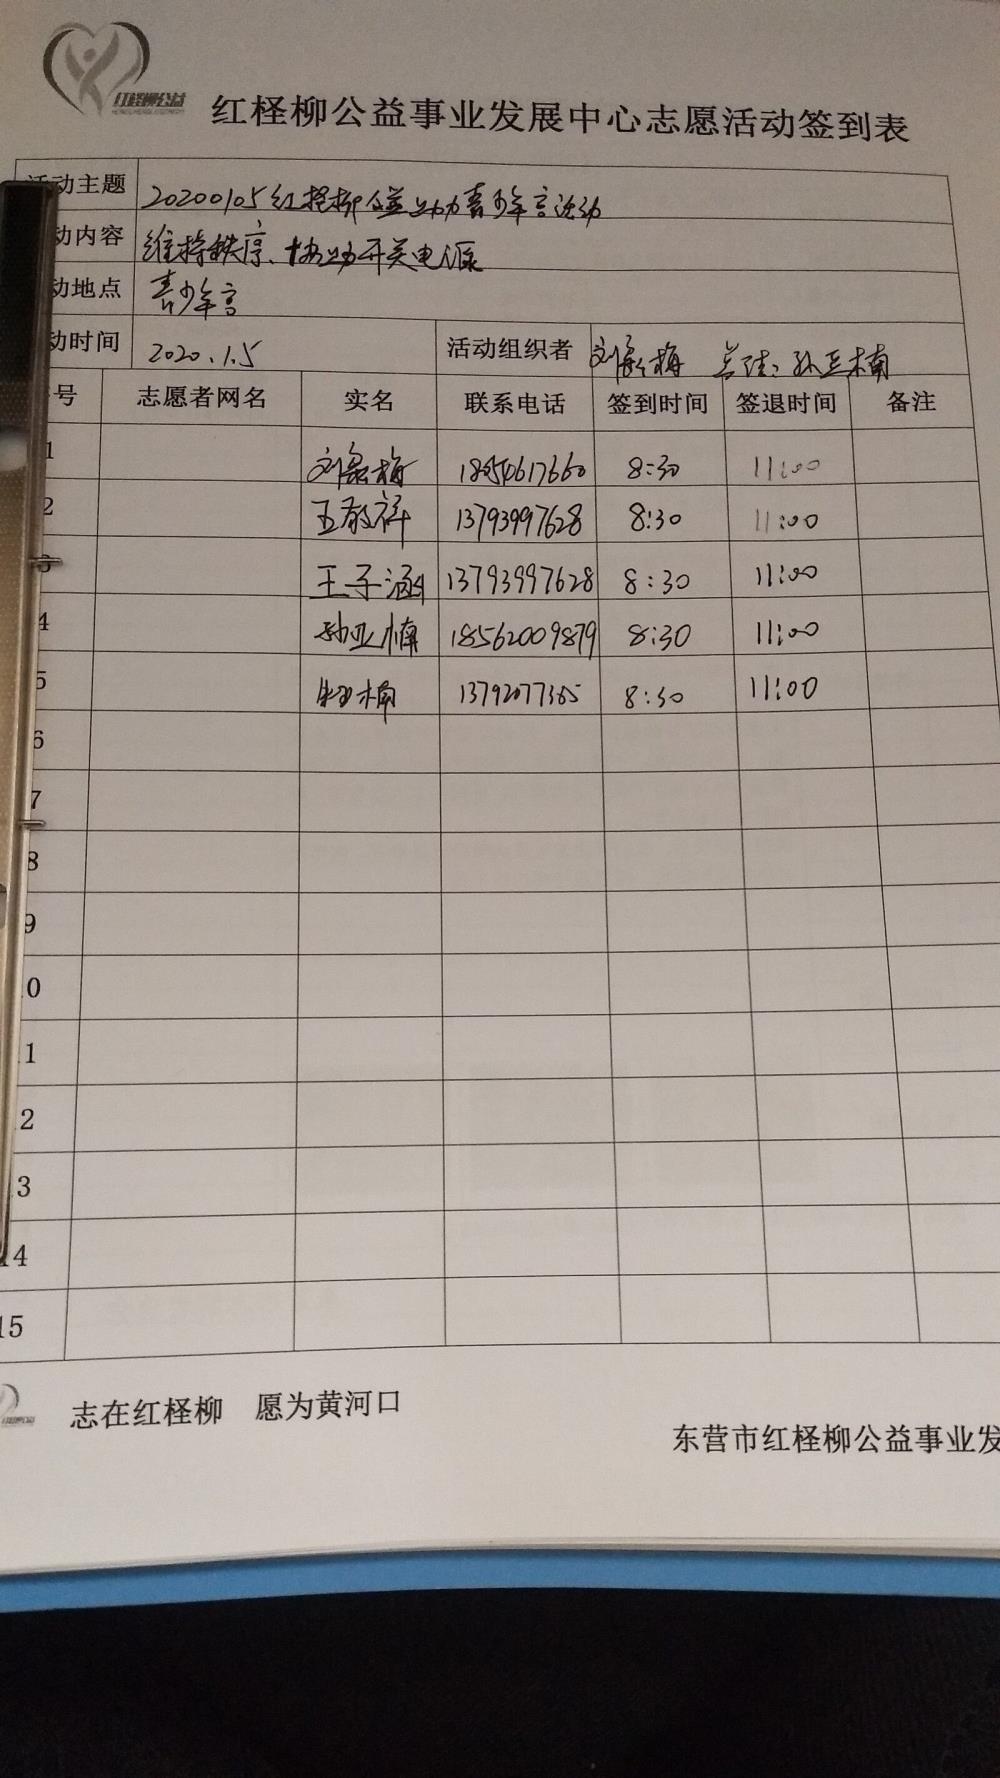 红柽柳公益
红柽柳公益事业发展中心志愿活动签到表
活动主题 20200105红柽柳公益协助青少年宫活动
动内容 维持秩序、协助开关电源
动地点 青少年宫
动时间 2020.1.5 活动组织者 刘 梅 总结：孙亚楠
号 志愿者网名 实名 联系电话 签到时间 签退时间 备注
1 刘 梅 18654617660 8:30 11:00
2 王敬祥 13793997628 8:30 11:00
3 王子涵 13793997628 8:30 11:00
4 孙亚楠 18562009879 8:30 11:00
5 楠 13792077365 8:30 11:00
6
7
8
9
0
1
2
3
14
15
志在红柽柳 愿为黄河口
东营市红柽柳公益事业发